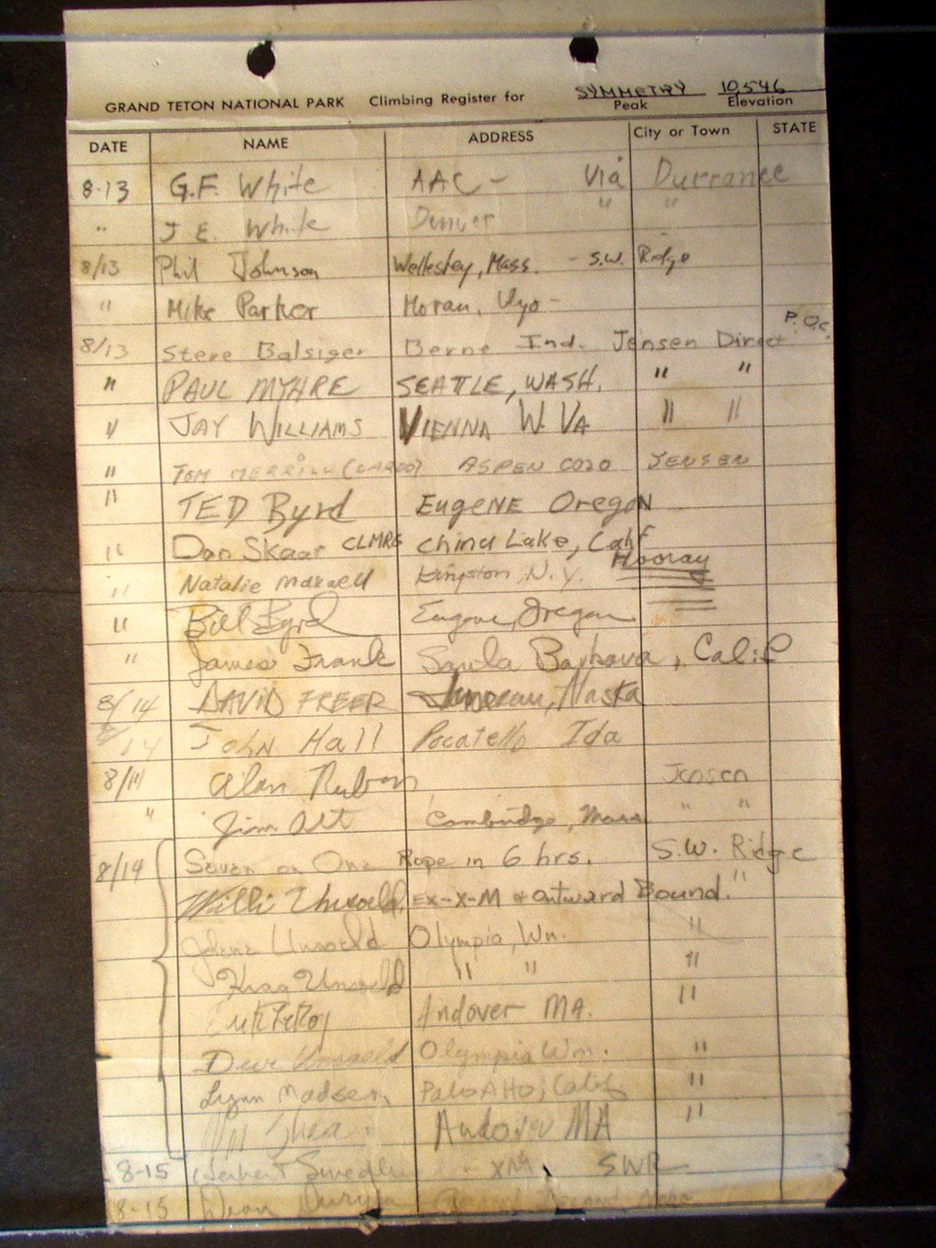 SYMMETRY 10,546
GRAND TETON NATIONAL PARK Climbing Register for Peak Elevation
DATE NAME ADDRESS City or Town STATE
8-13 G.F. White AAC - Via Durrance
" J E. White Denver " "
8/13 Phil Johnson Wellesley, Mass. - S.W. Ridge
" Mike Parker Moran, Wyo -
8/13 Steve Balsiger Berne Ind. Jensen Direct
" PAUL MYHRE SEATTLE, WASH. " "
" JAY WILLIAMS VIENNA W. VA " "
" TOM MERRILL ASPEN COLO JENSEN
" TED Byrd EugeNE OregoN
" Dan Skaar CLMRG China Lake, Calif
Hooray
" Natalie Maxwell Kingston, N.Y.
" Bill Byrd Eugene, Oregon
" James Frank Santa Barbara, Calif
8/14 DAVID FREER Juneau, Alaska
14 JOHN Hall Pocatello Ida
8/14 Alan Rubin Jensen
" Jim Alt Cambridge, Mass " "
8/14 Seven on One Rope in 6 hrs. S.W. Ridge
Willi Unsoeld, EX-X-M & Outward Bound. "
Unsoeld Olympia, Wn. "
Krag Unsoeld " " "
Andover MA. "
Devi Unsoeld Olympia Wn. "
Lynn Madsen, Palo Alto, Calif "
Shea Andover MA "
8-15 XM SWR
8-15 Dean